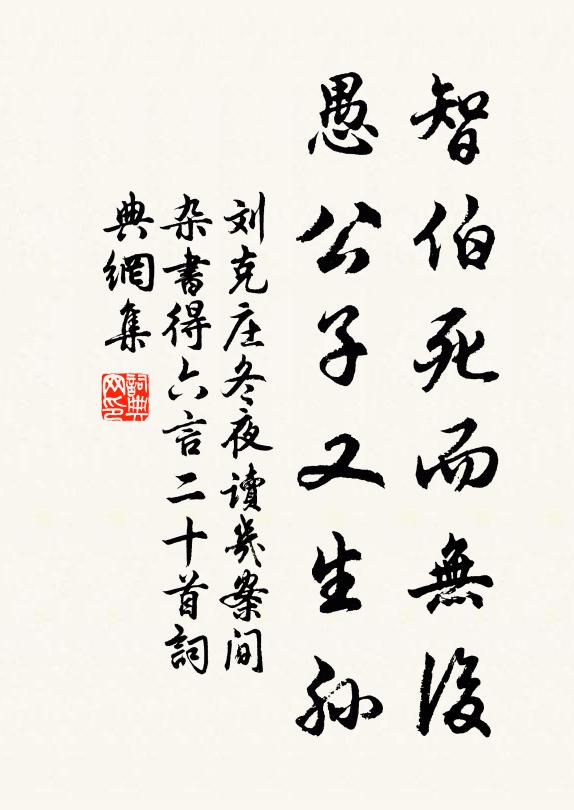 智伯死而無後
愚公子又生孙
刘克庄冬夜讀幾案间
杂書得六言二十首詞
典網集
詞典网印